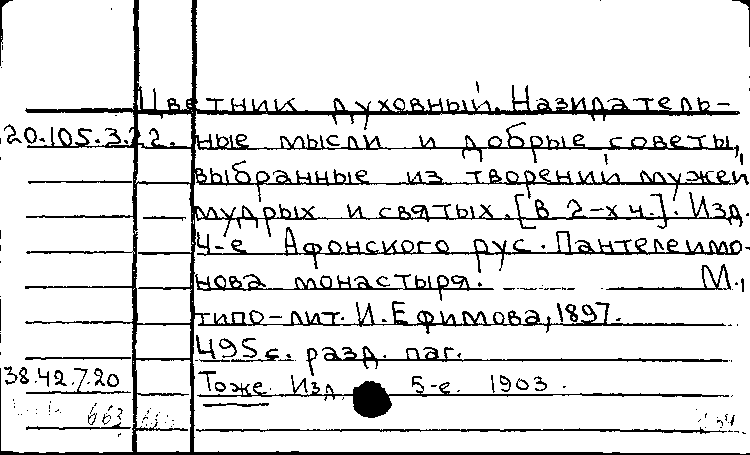 Цветник духовный. Назидатель-
20.105.3.22. ные мысли и добрые советы,
выбранные из творений мужей
мудрых и святых. [В 2-х ч.]. Изд.
4-е Афонского рус. Пантелеимо-
нова монастыря. М.,
типо-лит. И. Ефимова, 1897.
495 с. разд. паг.
38.42.7.20 Тоже Изд. 5-е. 1903.
663